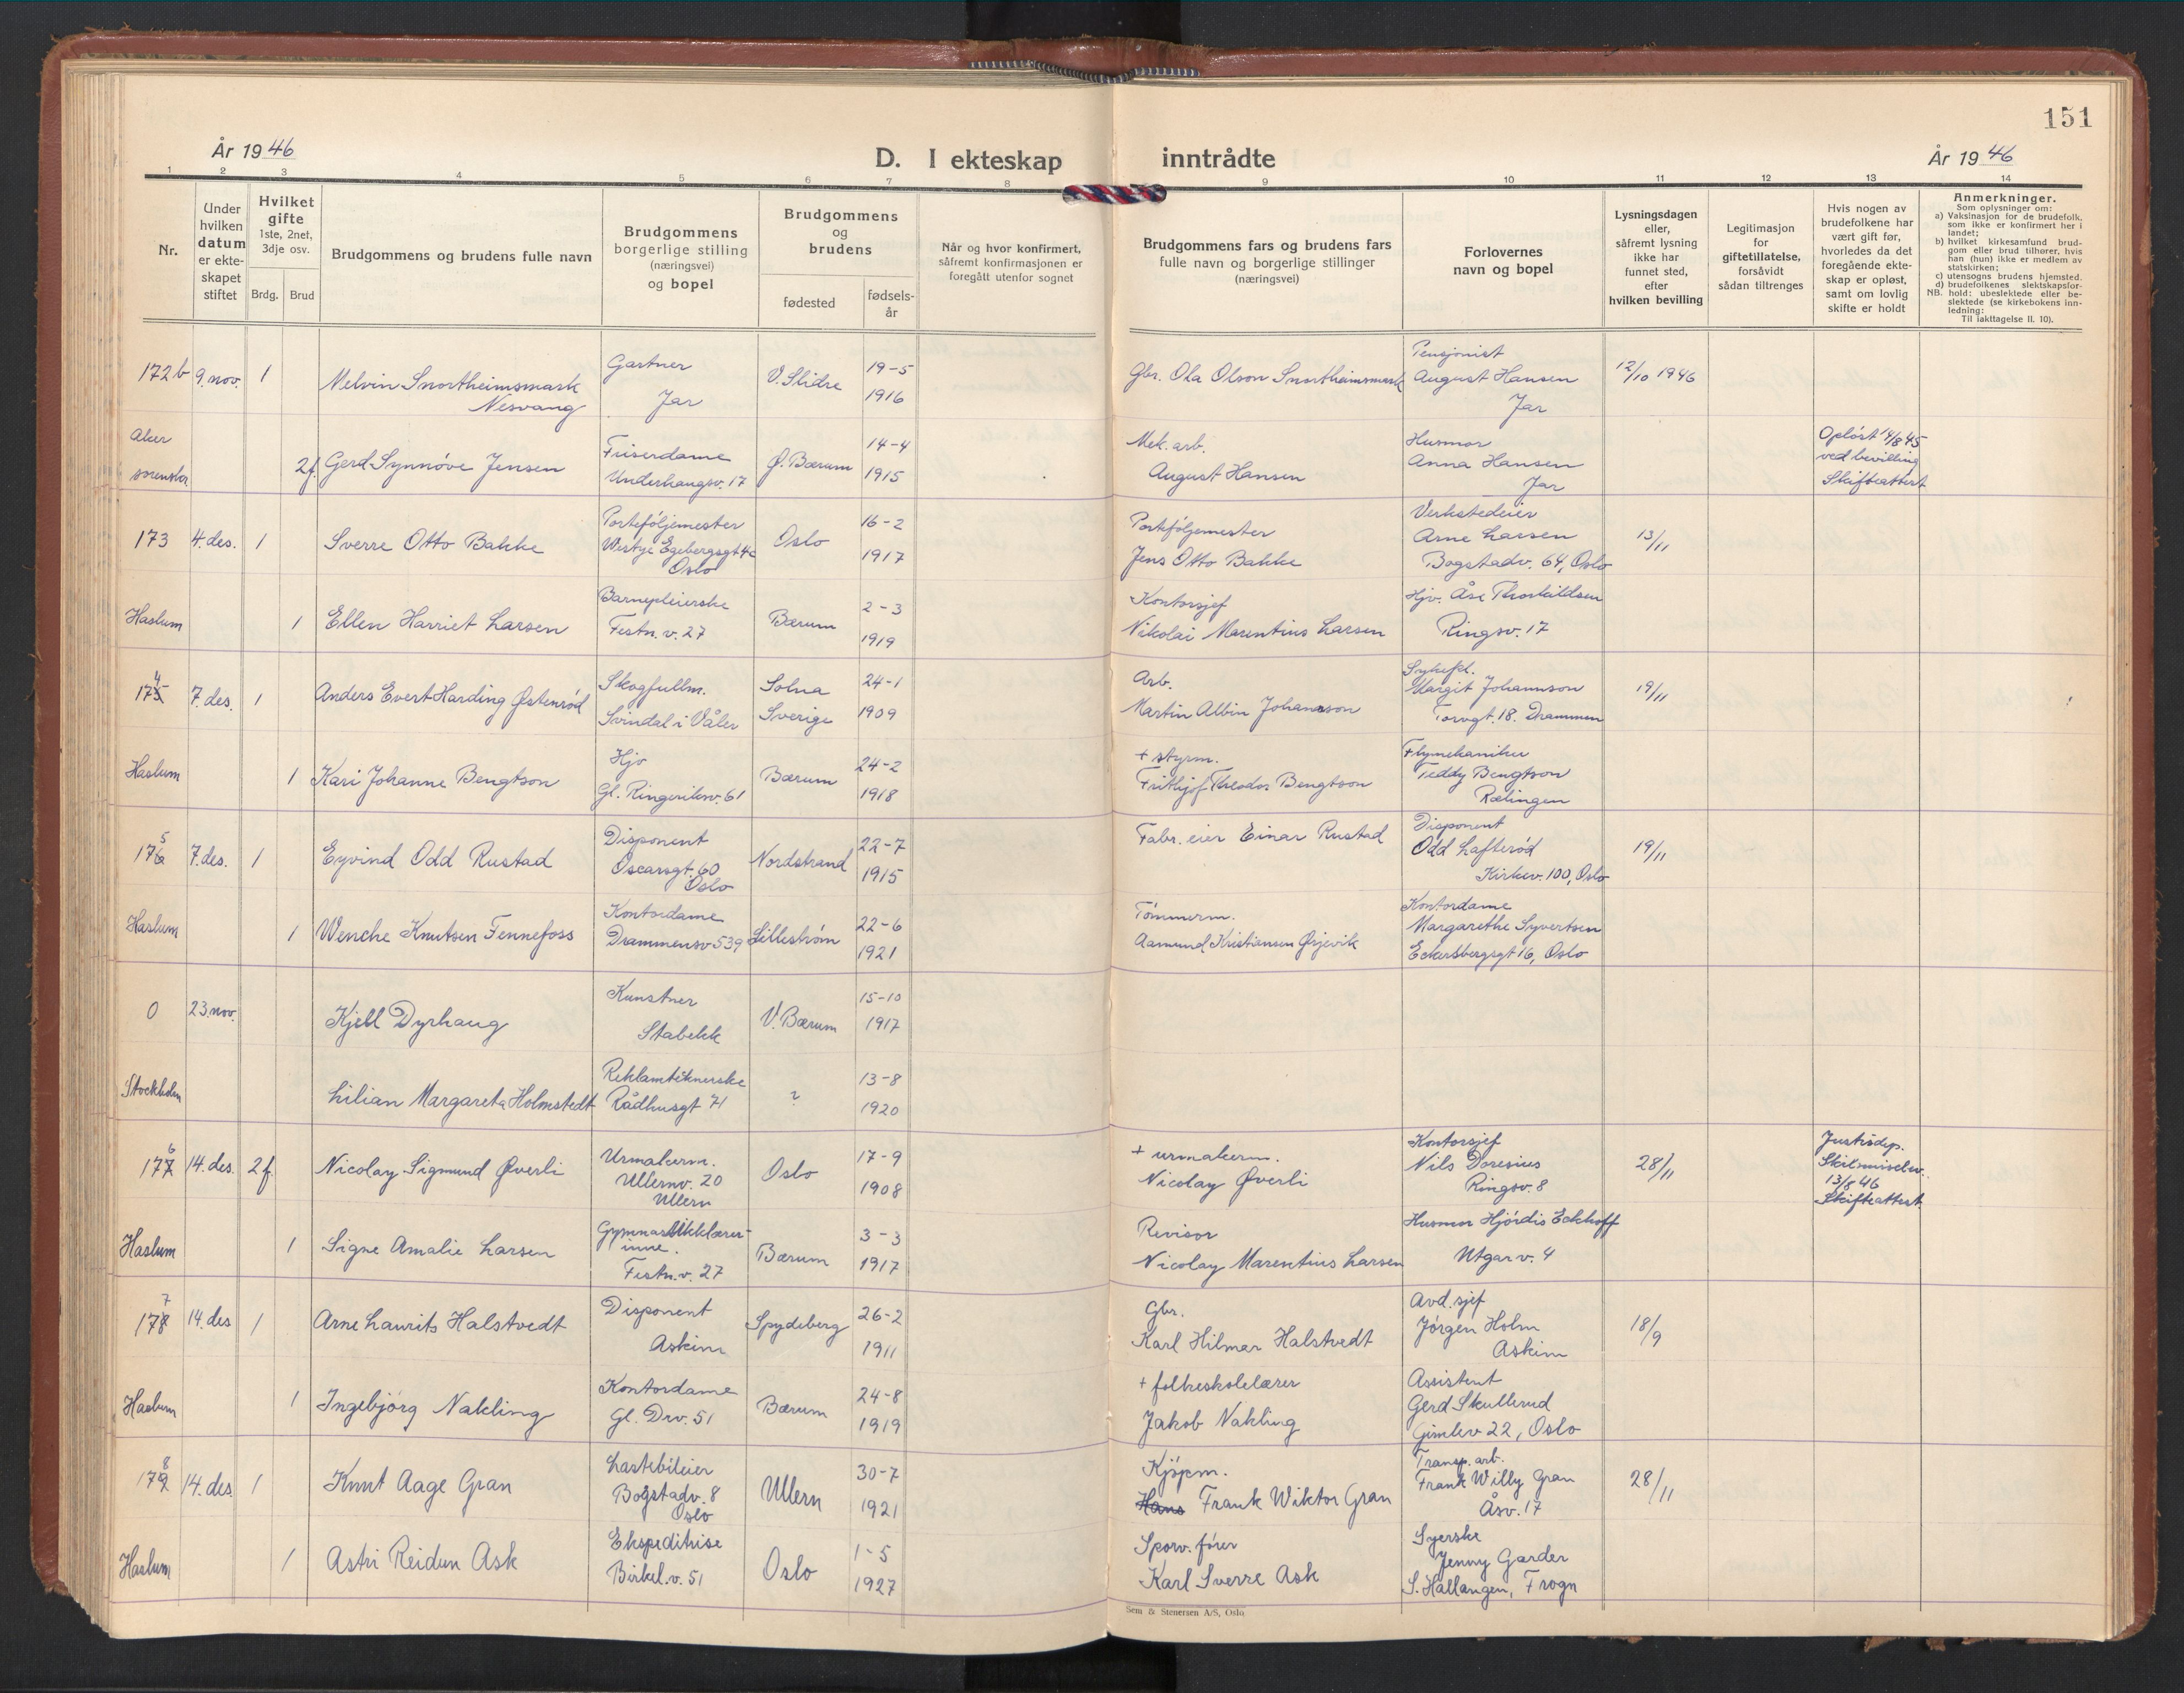 151
År 1946
D. I ekteskap inntrådte
År 1946
1 2 3 4 5 6 7 8 9 10 11 12 13 14
Nr.
Under
hvilken
datum
er ekte-
skapet
stiftet
Hvilket
gifte
1ste, 2net,
3dje osv.
Brdg. Brud
Brudgommens og brudens fulle navn
Brudgommens
borgerlige stilling
(næringsvei)
og bopel
Brudgommens
og
brudens
fødested
fødsels-
år
Når og hvor konfirmert,
såfremt konfirmasjonen er
foregått utenfor sognet
Brudgommens fars og brudens fars
fulle navn og borgerlige stillinger
(næringsvei)
Forlovernes
navn og bopel
Lysningsdagen
eller,
såfremt lysning
ikke har
funnet sted,
efter
hvilken bevilling
Legitimasjon
for
giftetillatelse,
forsåvidt
sådan tiltrenges
Hvis nogen av
brudefolkene har
vært gift før,
hvorledes da det
foregående ekte-
skap er opløst,
samt om lovlig
skifte er holdt
Anmerkninger.
Som oplysninger om:
a) Vaksinasjon for de brudefolk,
som ikke er konfirmert her i
landet;
b) hvilket kirkesamfund brud-
gom eller brud tilhører, hvis
han (hun) ikke er medlem av
statskirken;
c) utensogns brudens hjemsted.
d) brudefolkenes slektskapsfor-
NB. hold: ubeslektede eller be-
slektede (se kirkebokens inn-
ledning:
Til iakttagelse II. 10).
172b 9. nov. 1
Melvin Snortheimsmark
Nesvang
Gartner
Jar
V. Slidre
19-5
1916
Gbr. Ola Olson Snortheimsmark
Pensjonist
August Hansen
Jar
12/10 1946
Aker
sorenskr.
2f. Gerd Synnöve Jensen
Friserdame
Underhaugsv. 17
Ø. Bærum
14-4
1915
Mek. arb.
August Hansen
Husmor
Anna Hansen
Jar
Opløst 14/8 45
ved bevilling
Skifteattest
173 4. des. 1
Sverre Otto Bakke
Porteføljemester
Westye Egebergsgt 4c
Oslo
Oslo
16-2
1917
Porteføljemester
Jens Otto Bakke
Verkstedeier
Arne Larsen
Bogstadv. 64, Oslo
13/11
Haslum
1 Ellen Harriet Larsen
Barnepleierske
Festn. v. 27
Bærum
2-3
1919
Kontorsjef
Nikolai Marentius Larsen
Hjv. Åse Thorkildsen
Ringsv. 17
4
175 7. des. 1
Anders Evert Harding Østenrød
Skogfullm.
Svindal i Våler
Solna
Sverige
24-1
1909
Arb.
Martin Albin Johansson
Sykepl.
Margit Johannson
Torvgt. 18. Drammen
19/11
Haslum
1 Kari Johanne Bengtson
Hjv
Gl. Ringeriksv. 61
Bærum
24-2
1918
+ styrm.
Frithjof Theodor Bengtson
Flymekaniker
Teddy Bengtson
Rælingen
5
176 7. des. 1
Eyvind Odd Rustad
Disponent
Oscarsgt. 60
Oslo
Nordstrand
22-7
1915
Fabr. eier Einar Rustad
Disponent
Odd Lafterød
Kirkev. 100, Oslo
19/11
Haslum
1 Wenche Knutsen Fennefoss
Kontordame
Drammensv 539
Lillestrøm
22-6
1921
Tömmerm.
Aamund Kristiansen Øyjevik
Kontordame
Margarethe Syvertsen
Eckersbergsgt 16, Oslo
0 23. nov.
Kjell Dyrhaug
Kunstner
Stabekk
V. Bærum
15-10
1917
Stockholm
Lilian Margareta Holmstedt
Reklametiknerske
Rådhusgt 71
?
13-8
1920
6
177 14. des. 2f.
Nicolay Sigmund Øverli
Urmakerm.
Ullernv. 20
Ullern
Oslo
17-9
1908
+ urmakerm.
Nicolay Øverli
Kontorsjef
Nils Doresius
Ringsv. 8
28/11
Justisdep.
Skilsmissebev.
13/8 46
Skifteattest
Haslum
1 Signe Amalie Larsen
Gymnastikklærer-
inne.
Festn. v. 27
Bærum
3-3
1917
Revisor
Nicolay Marentius Larsen
Husmor Hjördis Eckhoff
Utgar v. 4
7
178 14. des 1
Arne Laurits Halstvedt
Disponent
Askim
Spydeberg
26-2
1911
Gbr.
Karl Hilmar Halstvedt
Avd. sjef
Jörgen Holm
Askim
18/9
Haslum
1 Ingebjörg Nakling
Kontordame
Gl. Drv. 51
Bærum
24-8
1919
+ folkeskolelærer
Jakob Nakling
Assistent
Gerd Skullerud
Gimlev 22, Oslo
8
179 14. des. 1
Knut Aage Gran
Lastebileier
Bogstadv. 8
Oslo
Ullern
30-7
1921
Kjöpm.
Hans Frank Wiktor Gran
Transp. arb.
Frank Willy Gran
Åsv. 17
28/11
Haslum
1 Astri Reidun Ask
Ekspeditrise
Birkel. v. 51
Oslo
1-5
1927
Sporv. fører
Karl Sverre Ask
Syerske
Jenny Garder
S. Hallangen, Frogn
Sem & Stenersen A/S, Oslo